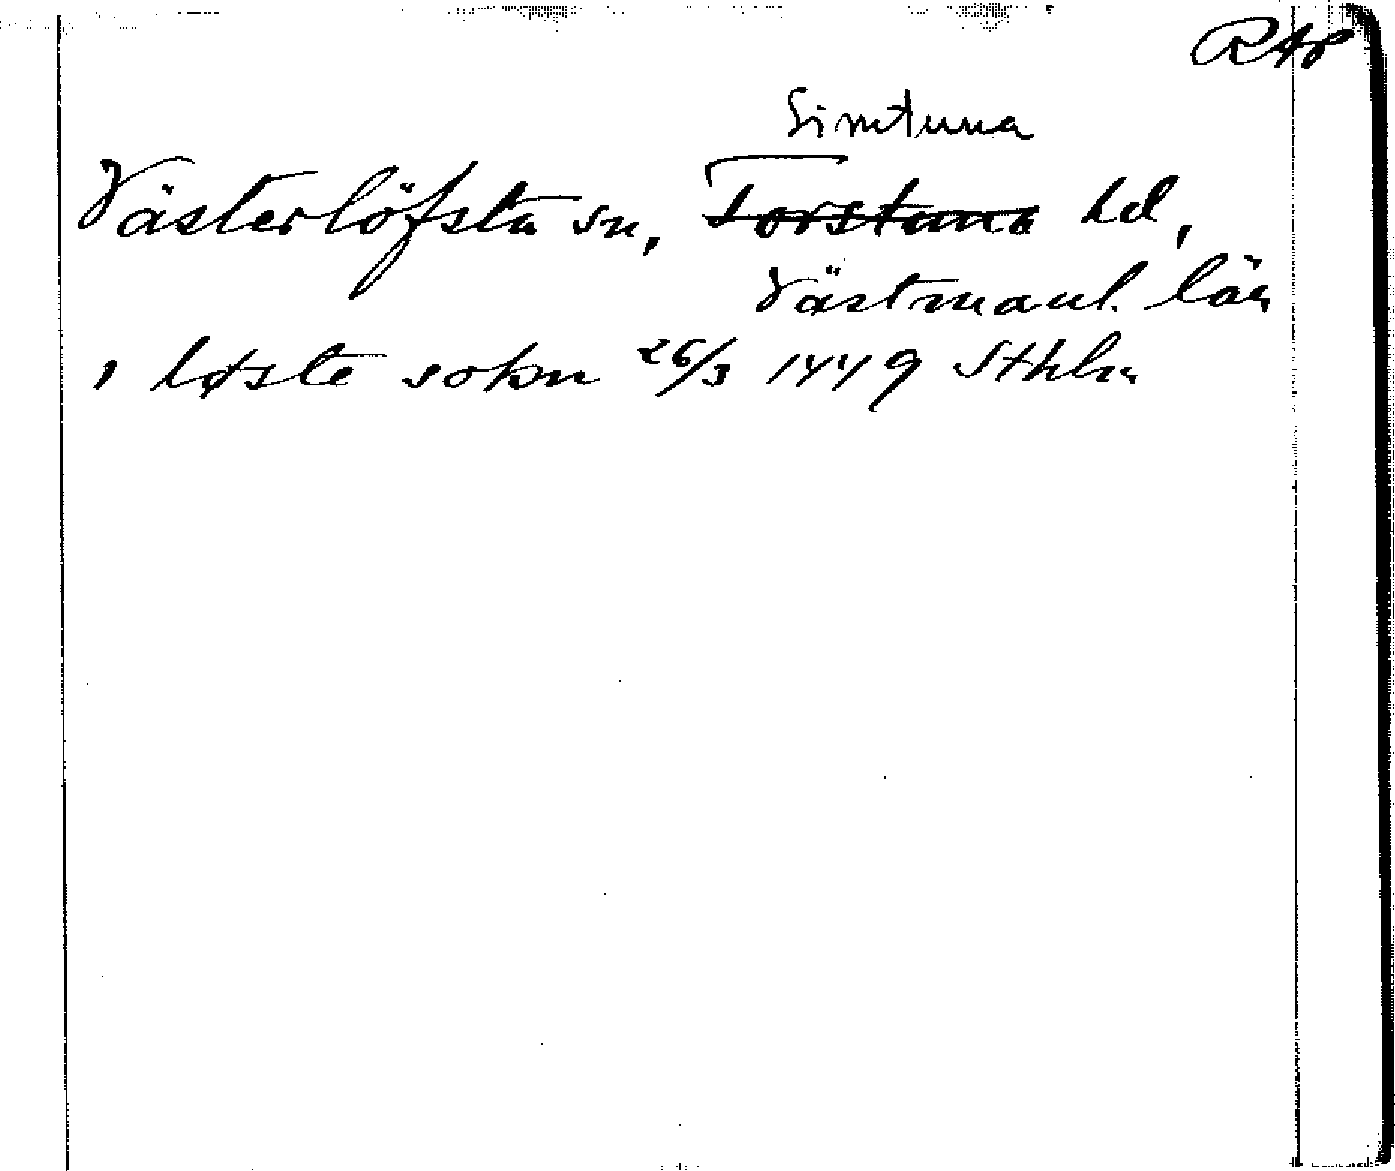 RAP
Simtuna
Västerlöfsta sn, Torstuna hd,
Västmanl. län
i løste sokn 26/3 1449 Sthlm